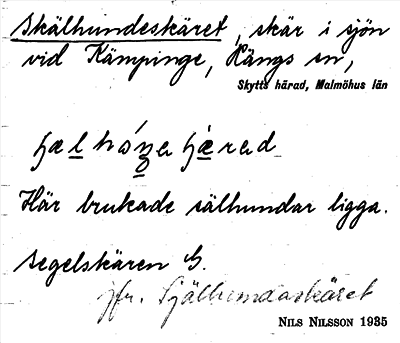 Skälhundeskäret, skär i sjön
vid Kämpinge, Rängs sn,
Skytts härad, Malmöhus län
Här brukade sälhundar ligga.
Segelskären G.
jfr. Själhundaskäret
NILS NILSSON 1935